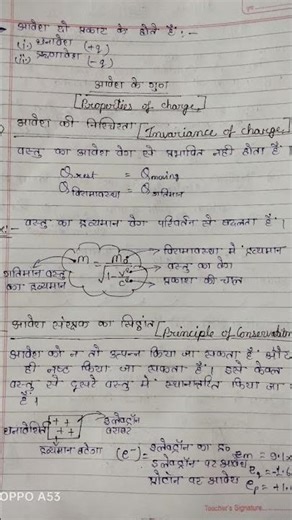 आवेश दो प्रकार के होते हैं:-
(i) धनावेश (+q)
(ii) ऋणावेश (-q)
आवेश के गुण
[Properties of charge]
आवेश की निश्चरता [Invariance of charge]
वस्तु का आवेश वेग से प्रभावित नहीं होता है।
Qrest = Qmoving
Qविरामावस्था = Qगतिमान
वस्तु का द्रव्यमान वेग परिवर्तन से बदलता है।
विरामावस्था में द्रव्यमान
m = m₀ / √1-v²/c²
वस्तु का वेग
गतिमान वस्तु का द्रव्यमान
प्रकाश की चाल
आवेश संरक्षण का सिद्धांत [Principle of Conservation
आवेश को न तो उत्पन्न किया जा सकता है और
ही नष्ट किया जा सकता है। इसे केवल
वस्तु से दूसरे वस्तु में स्थानान्तरित किया जा
है।
धनावेशित ++ ++ इलेक्ट्रॉन
द्रव्यमान घटेगा (e⁻) = इलेक्ट्रॉन का द्र० em = 9.1x
इलेक्ट्रॉन पर आवेश eq = -1.6
प्रोटॉन पर आवेश ep = +1.
OPPO A53
Teacher's Signature